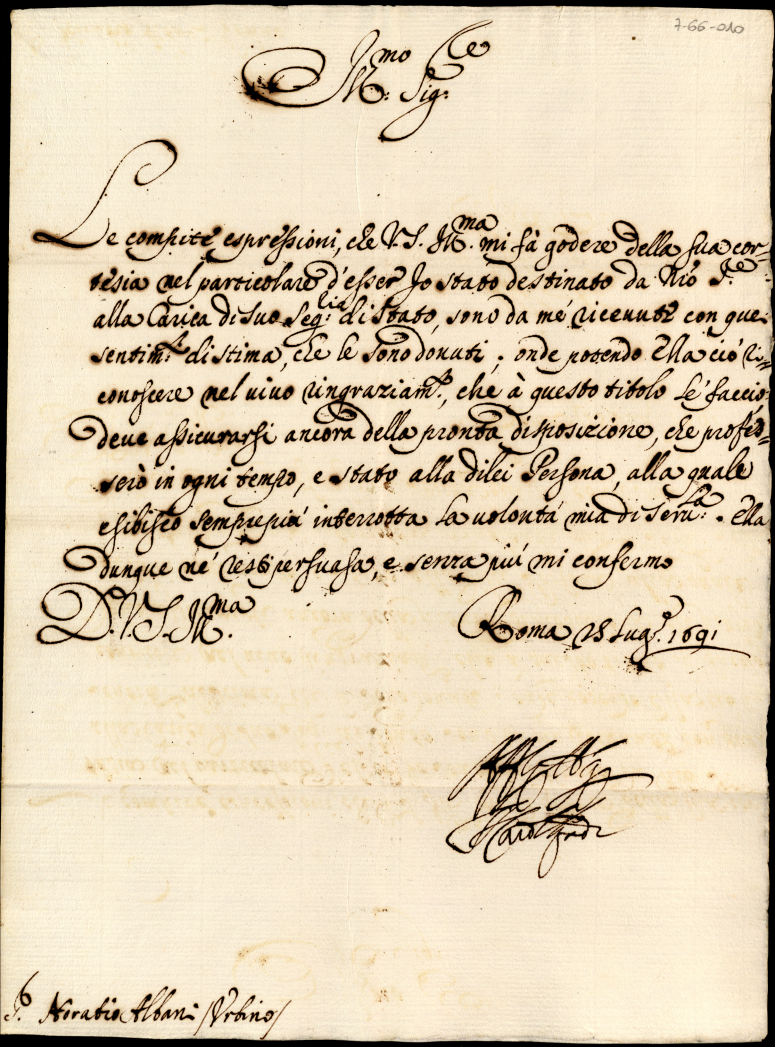 7-66-010
Ill.mo Sig.re
Le compite espressioni, che V.S. Ill.ma mi fà godere della sua cor-
tesia nel particolare d'esser Io stato destinato da Nrō S.re
alla Carica di Suo Seg.rio di Stato, sono da mé riceuute con quei
sentim.ti di stima, che le sono douuti; onde potendo Ella ciò ri-
conoscere nel uiuo ringraziam.to, che à questo titolo Le faccio,
deue assicurarsi ancora della pronta disposizione, che profes-
serò in ogni tempo, e stato alla dilei Persona, alla quale
esibisco semprepiù interrotta la uolontà mia di Seru.la. Ella
dunque né resti persuasa, e senza piú mi confermo
D. V.S. Ill.ma
Roma 28 Lug.o 1691
Aff.mo
Card.
S.r Horatio Albani /Vrbino/